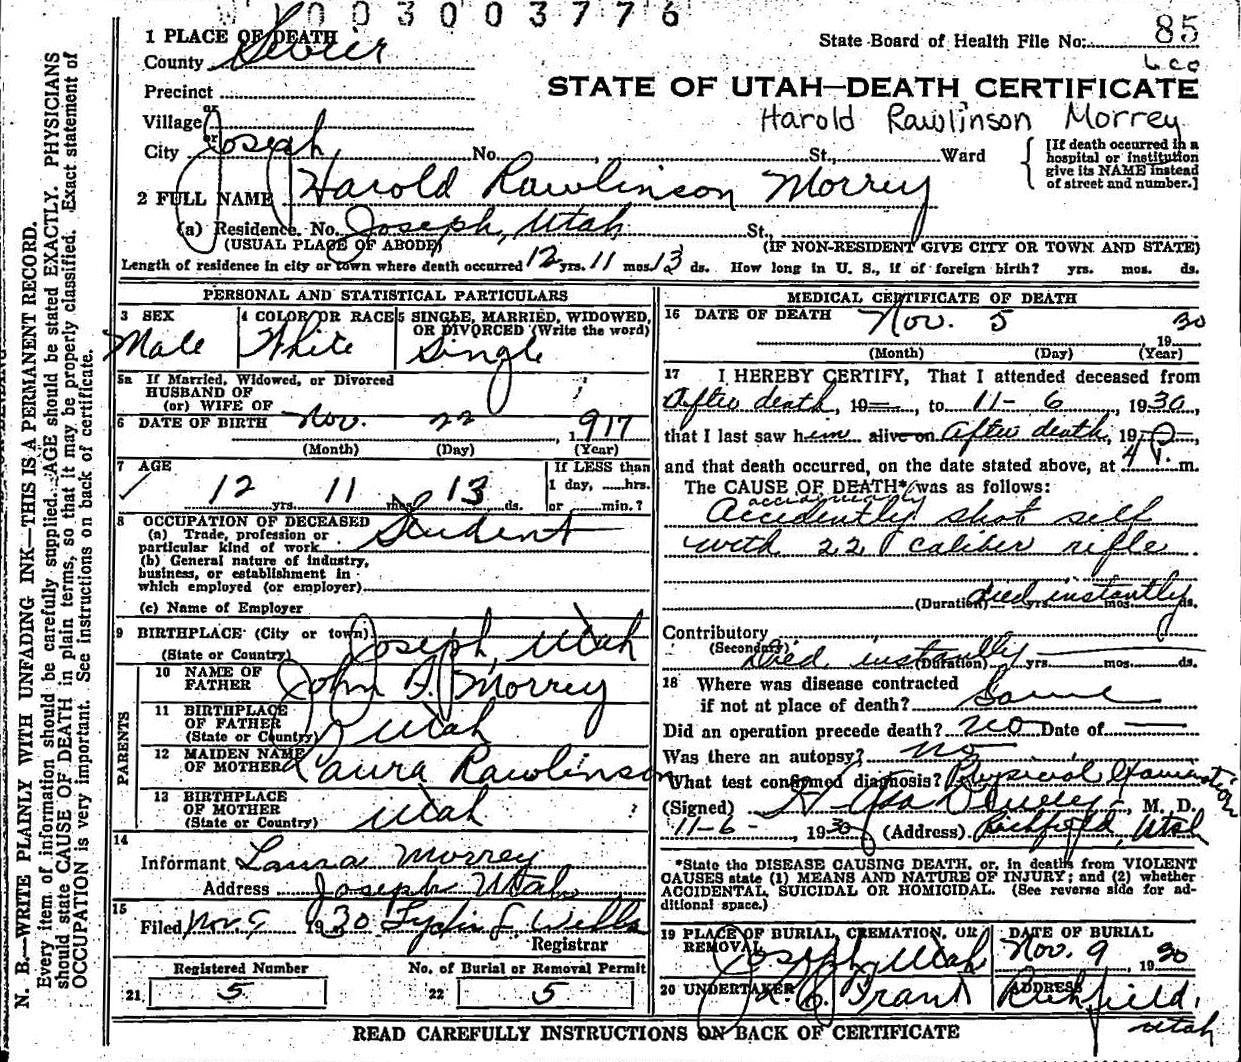 0 0 3 0 0 3 7 7 6
1 PLACE OF DEATH
County Sevier
State Board of Health File No. 85
Precinct
STATE OF UTAH—DEATH CERTIFICATE
or
Village
Harold Rawlinson Morrey
or
City Joseph No. St., Ward
[If death occurred in a hospital or institution give its NAME instead of street and number.]
2 FULL NAME Harold Rawlinson Morrey
(a) Residence. No. Joseph, Utah St.,
(USUAL PLACE OF ABODE) (IF NON-RESIDENT GIVE CITY OR TOWN AND STATE)
Length of residence in city or town where death occurred 12 yrs. 11 mos. 13 ds. How long in U. S., if of foreign birth? yrs. mos. ds.
PERSONAL AND STATISTICAL PARTICULARS
3 SEX
Male
4 COLOR OR RACE
White
5 SINGLE, MARRIED, WIDOWED,
OR DIVORCED (Write the word)
Single
5a If Married, Widowed, or Divorced
HUSBAND OF
(or) WIFE OF
6 DATE OF BIRTH Nov. 22, 1917
(Month) (Day) (Year)
7 AGE
12 yrs. 11 mos. 13 ds.
If LESS than
1 day, ......hrs.
or ......min.?
8 OCCUPATION OF DECEASED
(a) Trade, profession or
particular kind of work Student
(b) General nature of industry,
business, or establishment in
which employed (or employer)
(c) Name of Employer
9 BIRTHPLACE (City or town) Joseph, Utah
(State or Country)
PARENTS
10 NAME OF
FATHER John F. Morrey
11 BIRTHPLACE
OF FATHER
(State or Country) Utah
12 MAIDEN NAME
OF MOTHER Laura Rawlinson
13 BIRTHPLACE
OF MOTHER
(State or Country) Utah
14
Informant Laura Morrey
Address Joseph Utah
15
Filed Nov. 9 1930 Lydia L. Wells
Registrar
Registered Number
21 5
No. of Burial or Removal Permit
22 5
MEDICAL CERTIFICATE OF DEATH
16 DATE OF DEATH Nov. 5 1930
(Month) (Day) (Year)
17 I HEREBY CERTIFY, That I attended deceased from
After death, 19, to 11-6, 1930,
that I last saw him alive on After death, 19,
and that death occurred, on the date stated above, at 4 P. m.
The CAUSE OF DEATH* was as follows:
accidentally
Accidently shot self
with 22 caliber rifle
(Duration) died instantly yrs. mos. ds.
Contributory
(Secondary) Died instantly (Duration) yrs. mos. ds.
18 Where was disease contracted
if not at place of death? Same
Did an operation precede death? no Date of
Was there an autopsy? no
What test confirmed diagnosis? Physical Examination
(Signed) M. D.
11-6-, 1930 (Address) Richfield, Utah
*State the DISEASE CAUSING DEATH, or, in deaths from VIOLENT
CAUSES state (1) MEANS AND NATURE OF INJURY; and (2) whether
ACCIDENTAL, SUICIDAL OR HOMICIDAL. (See reverse side for ad-
ditional space.)
19 PLACE OF BURIAL, CREMATION, OR
REMOVAL
Joseph, Utah
DATE OF BURIAL
Nov. 9, 1930
20 UNDERTAKER
ADDRESS
Richfield,
Utah
READ CAREFULLY INSTRUCTIONS ON BACK OF CERTIFICATE
N. B.—WRITE PLAINLY WITH UNFADING INK—THIS IS A PERMANENT RECORD.
Every item of information should be carefully supplied. AGE should be stated EXACTLY. PHYSICIANS
should state CAUSE OF DEATH in plain terms, so that it may be properly classified. Exact statement of
OCCUPATION is very important. See instructions on back of certificate.